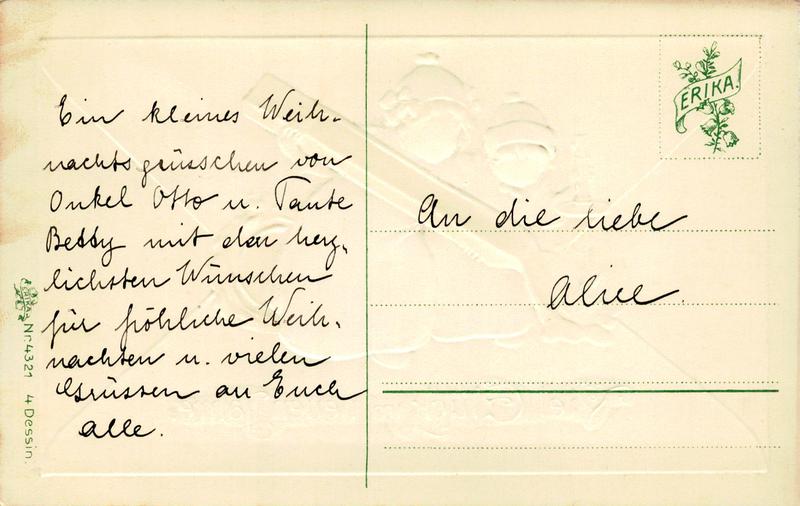 Ein kleines Weih-
nachtsgrüsschen von
Onkel Otto u. Tante
Betty mit den herz-
lichsten Wünschen
für fröhliche Weih-
nachten u. vielen
Grüssen an Euch
alle.
ERIKA
Nr. 4321 4 Dessin.
ERIKA!
An die liebe
Alice.